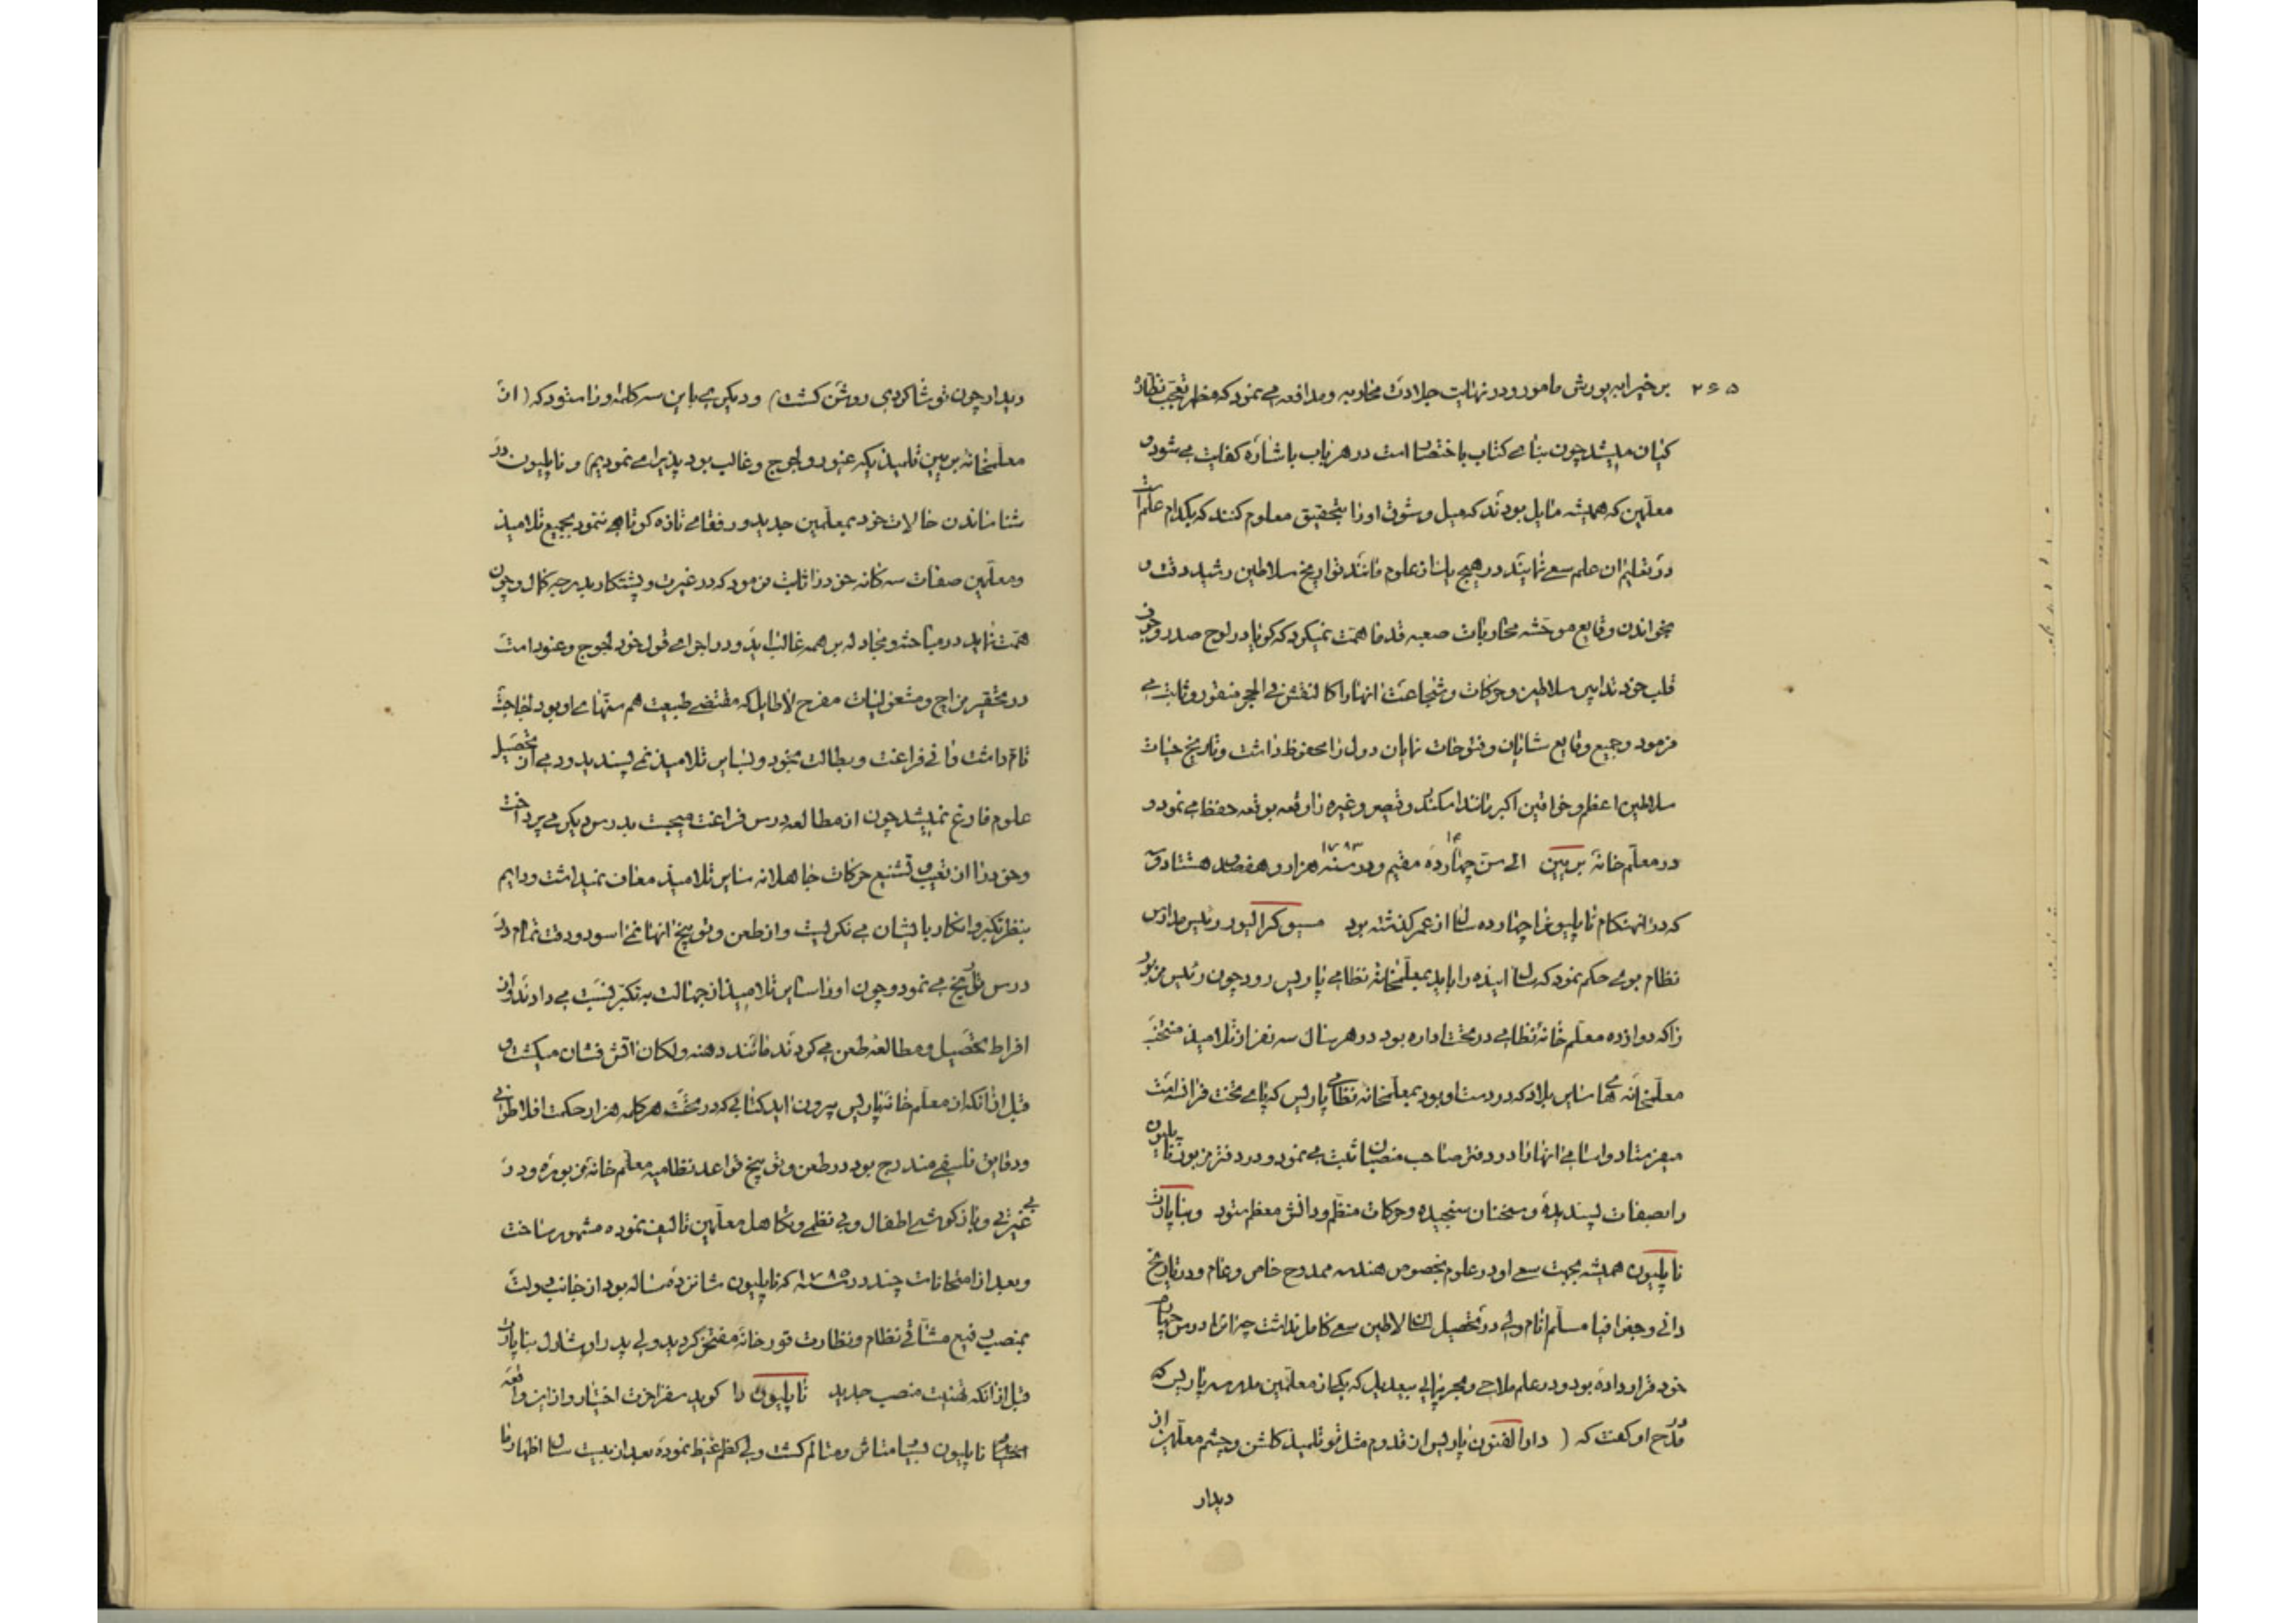 ۲۶۵
بر خیرابه یورش مامور و در نهایت جلادت محاربه و مدافعه می نمود که مظهر تعجب نظاره
کنان میشد چون بنای کتاب باختصار است در هر باب باشاره کفایت می شود و
معلمین که همیشه مایل بودند که میل و شوق او را بتحقیق معلوم کنند که بکدام علم است
در تعلیم ان علم سعی نمایند در هیچ یک از علوم مانند تواریخ سلاطین رشید دقت و
بخواندن وقایع موحشه محاربات صعبه قدما همت نمیکرد که کویا در لوح صدر و چون
قلب خود تدابیر سلاطین و حرکات و شجاعت انها را کالنقش فی الحجر منقور و ثابت می
فرمود و جمیع وقایع شایان و فتوحات نمایان دول را محفوظ داشت و تاریخ حیات
سلاطین اعظم و خواقین اکبر مانند اسکندر و قیصر و غیره را وقعه بوقعه حفظ می نمود و
در معلم خانه برین الی سن چهارده ۱۴ مقیم و در سنه ۱۷۸۳ هزار و هفصد هشتاد و سه
که در انهنکام ناپلیون را چهارده سال از عمر کذشته بود مسیو کرالیور رئیس مدارس
نظام بوی حکم نمود که سال اینده را باید بمعلمخانه نظامی پاریس رود چون رئیس مزبور
را که دوازده معلم خانه نظامی در تحت اداره بود در هر سال سه نفر از تلامیذ منتخب
معلمخانه های سایر بلاد که در دست او بود بمعلمخانه نظامی پاریس که پای تخت فرانسه است
میفرستاد و اسامی انها را در دفتر صاحب منصبان ثبت می نمود و در دفتر مزبور ناپلیون
را بصفات پسندیده و سخنان سنجیده و حرکات منظم و دانش معظم ستود و بناپارت
ناپلیون همیشه بجهت سعی او در علوم بخصوص هندسه ممدوح خاص و عام و در تاریخ
دانی و جغرافیا مسلم انام ولی در تحصیل لسان لاطین سعی کامل نداشت چه انرا درس
خود قرار داده بود و در علم ملاحی و بحر پیمایی بیعدیل که یکی از معلمین مدرسه پاریس که
در مدح او کفت که ( دارالفنون پاریس از قدوم مثل تو تلمیذ کلشن و چشم معلمین از
دیدار
دیدار چون تو شاکردی روشن کشت) و دیکری باین سه کلمه او را ستود که ( ان
معلمخانه برین تلمیذیکه عنود و لجوج و غالب بود پذیرای نمودیم) و ناپلیون در
شناساندن حالات خود بمعلمین جدید و رفقای تازه کوتاهی ننمود بجمیع تلامیذ
و معلمین صفات سه کانه خود را ثابت فرمود که در غیرت و پشتکار بدرجه کمال و چون
همت نماید در مباحثه و مجادله بر همه غالب اید و در اجرای قول خود لجوج و عنود است
در تحقیر مزاح و مشغولیات مفرح لاطایل که مقتضی طبیعت هم سنهای او بود لجاجت
تام داشت و انی فراغت و بطالت بخود و بسایر تلامیذ نمی پسندید و دمی از تحصیل
علوم فارغ نمیشد چون از مطالعه درس فراغت میجست بدرس دیکر می پرداخت
و خود را از تعییب و تشنیع حرکات جاهلانه سایر تلامیذ معاف نمیداشت و دایم
بنظر تکبر و انکار بایشان می نکریست و از طعن و توبیخ انها نمی اسود و دقت تمام در
درس تاریخ می نمود و چون او را سایر تلامیذ از جهالت به تکبر نسبت می دادند و از
افراط تحصیل و مطالعه طعن می کردند مانند دهنه ولکان اتش فشان میکشت و
قبل از انکه از معلم خانه پاریس بیرون اید کتابی که در تحت هر کلمه هزار حکمت افلاطونی
و دقایق فلسفی مندرج بود در طعن و توبیخ قواعد نظامیه معلم خانه مزبوره و در
بی غیرتی و بازیکوشی اطفال و بی نظمی و تکاهل معلمین تالیف نموده مشهور ساخت
و بعد از امتحانات چند در سنه ۱۷۸۵ که ناپلیون شانزده ساله بود از جانب دولت
بمنصب رفیع مشاقی نظام و نظارت قورخانه مفتخر کردید ولی پدر او شارل بناپارت
قبل از انکه تهنیت منصب جدید ناپلیون را کوید سفر اخرت اختیار و از این واقعه
ناپلیون بسیار متاثر و متالم کشت ولی کظم غیظ نموده بعد از بیست سال اظهار